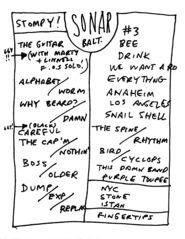 STOMPY!
SONAR
BALT.
#3
THE GUITAR
(WITH MARTY
+ LINNELL
SOLO!)
ALPHABET/
WORM
WHY BEARD?/
DAMN
CAREFUL
THE CAP'M/
NOTHIN'
BOSS/
OLDER
DUMP/
EXP/
REPLM
BEE
DRINK
WE WANT A RO
EVERYTHNG
ANAHEIM
LOS ANGELES
SNAIL SHELL
THE SPINE/
RHYTHM
BIRD/
CYCLOPS
THIS DAMN BAND
PURPLE TOUPEE
NYC
STONE
ISTAN
FINGERTIPS